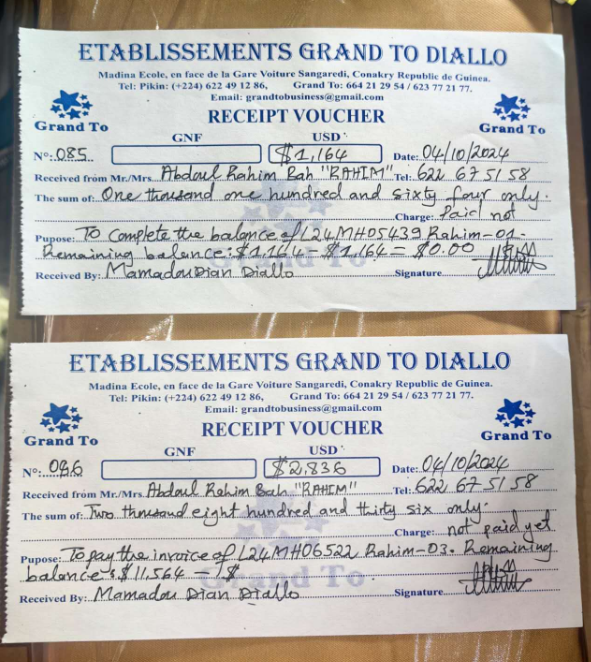 ETABLISSEMENTS GRAND TO DIALLO
Madina Ecole, en face de la Gare Voiture Sangaredi, Conakry Republic de Guinea.
Tel: Pikin: (+224) 622 49 12 86, Grand To: 664 21 29 54 / 623 77 21 77.
Email: grandtobusiness@gmail.com
RECEIPT VOUCHER
Grand To
Grand To
GNF USD
Nº: 085 $1,164 Date: 04/10/2024
Received from Mr/Mrs Abdoul Rahim Bah "RAHIM" Tel: 622 67 51 58
The sum of: One thousand one hundred and sixty four only.
Charge: Paid not
Pupose: To Complete the balance of L24MH05439 Rahim-01.
Remaining balance: $1,164 - $1,164 = $0.00
Received By: Mamadou Dian Diallo Signature
Grand To
ETABLISSEMENTS GRAND TO DIALLO
Madina Ecole, en face de la Gare Voiture Sangaredi, Conakry Republic de Guinea.
Tel: Pikin: (+224) 622 49 12 86, Grand To: 664 21 29 54 / 623 77 21 77.
Email: grandtobusiness@gmail.com
RECEIPT VOUCHER
Grand To
Grand To
GNF USD
Nº: 086 $2,836 Date: 04/10/2024
Received from Mr/Mrs Abdoul Rahim Bah "RAHIM" Tel: 622 67 51 58
The sum of: Two thousand eight hundred and thirty six only.
Charge: not paid yet
Pupose: To pay the invoice of L24MH06522 Rahim-03. Remaining
balance: $11,564 $
Grand To
Received By: Mamadou Dian Diallo Signature